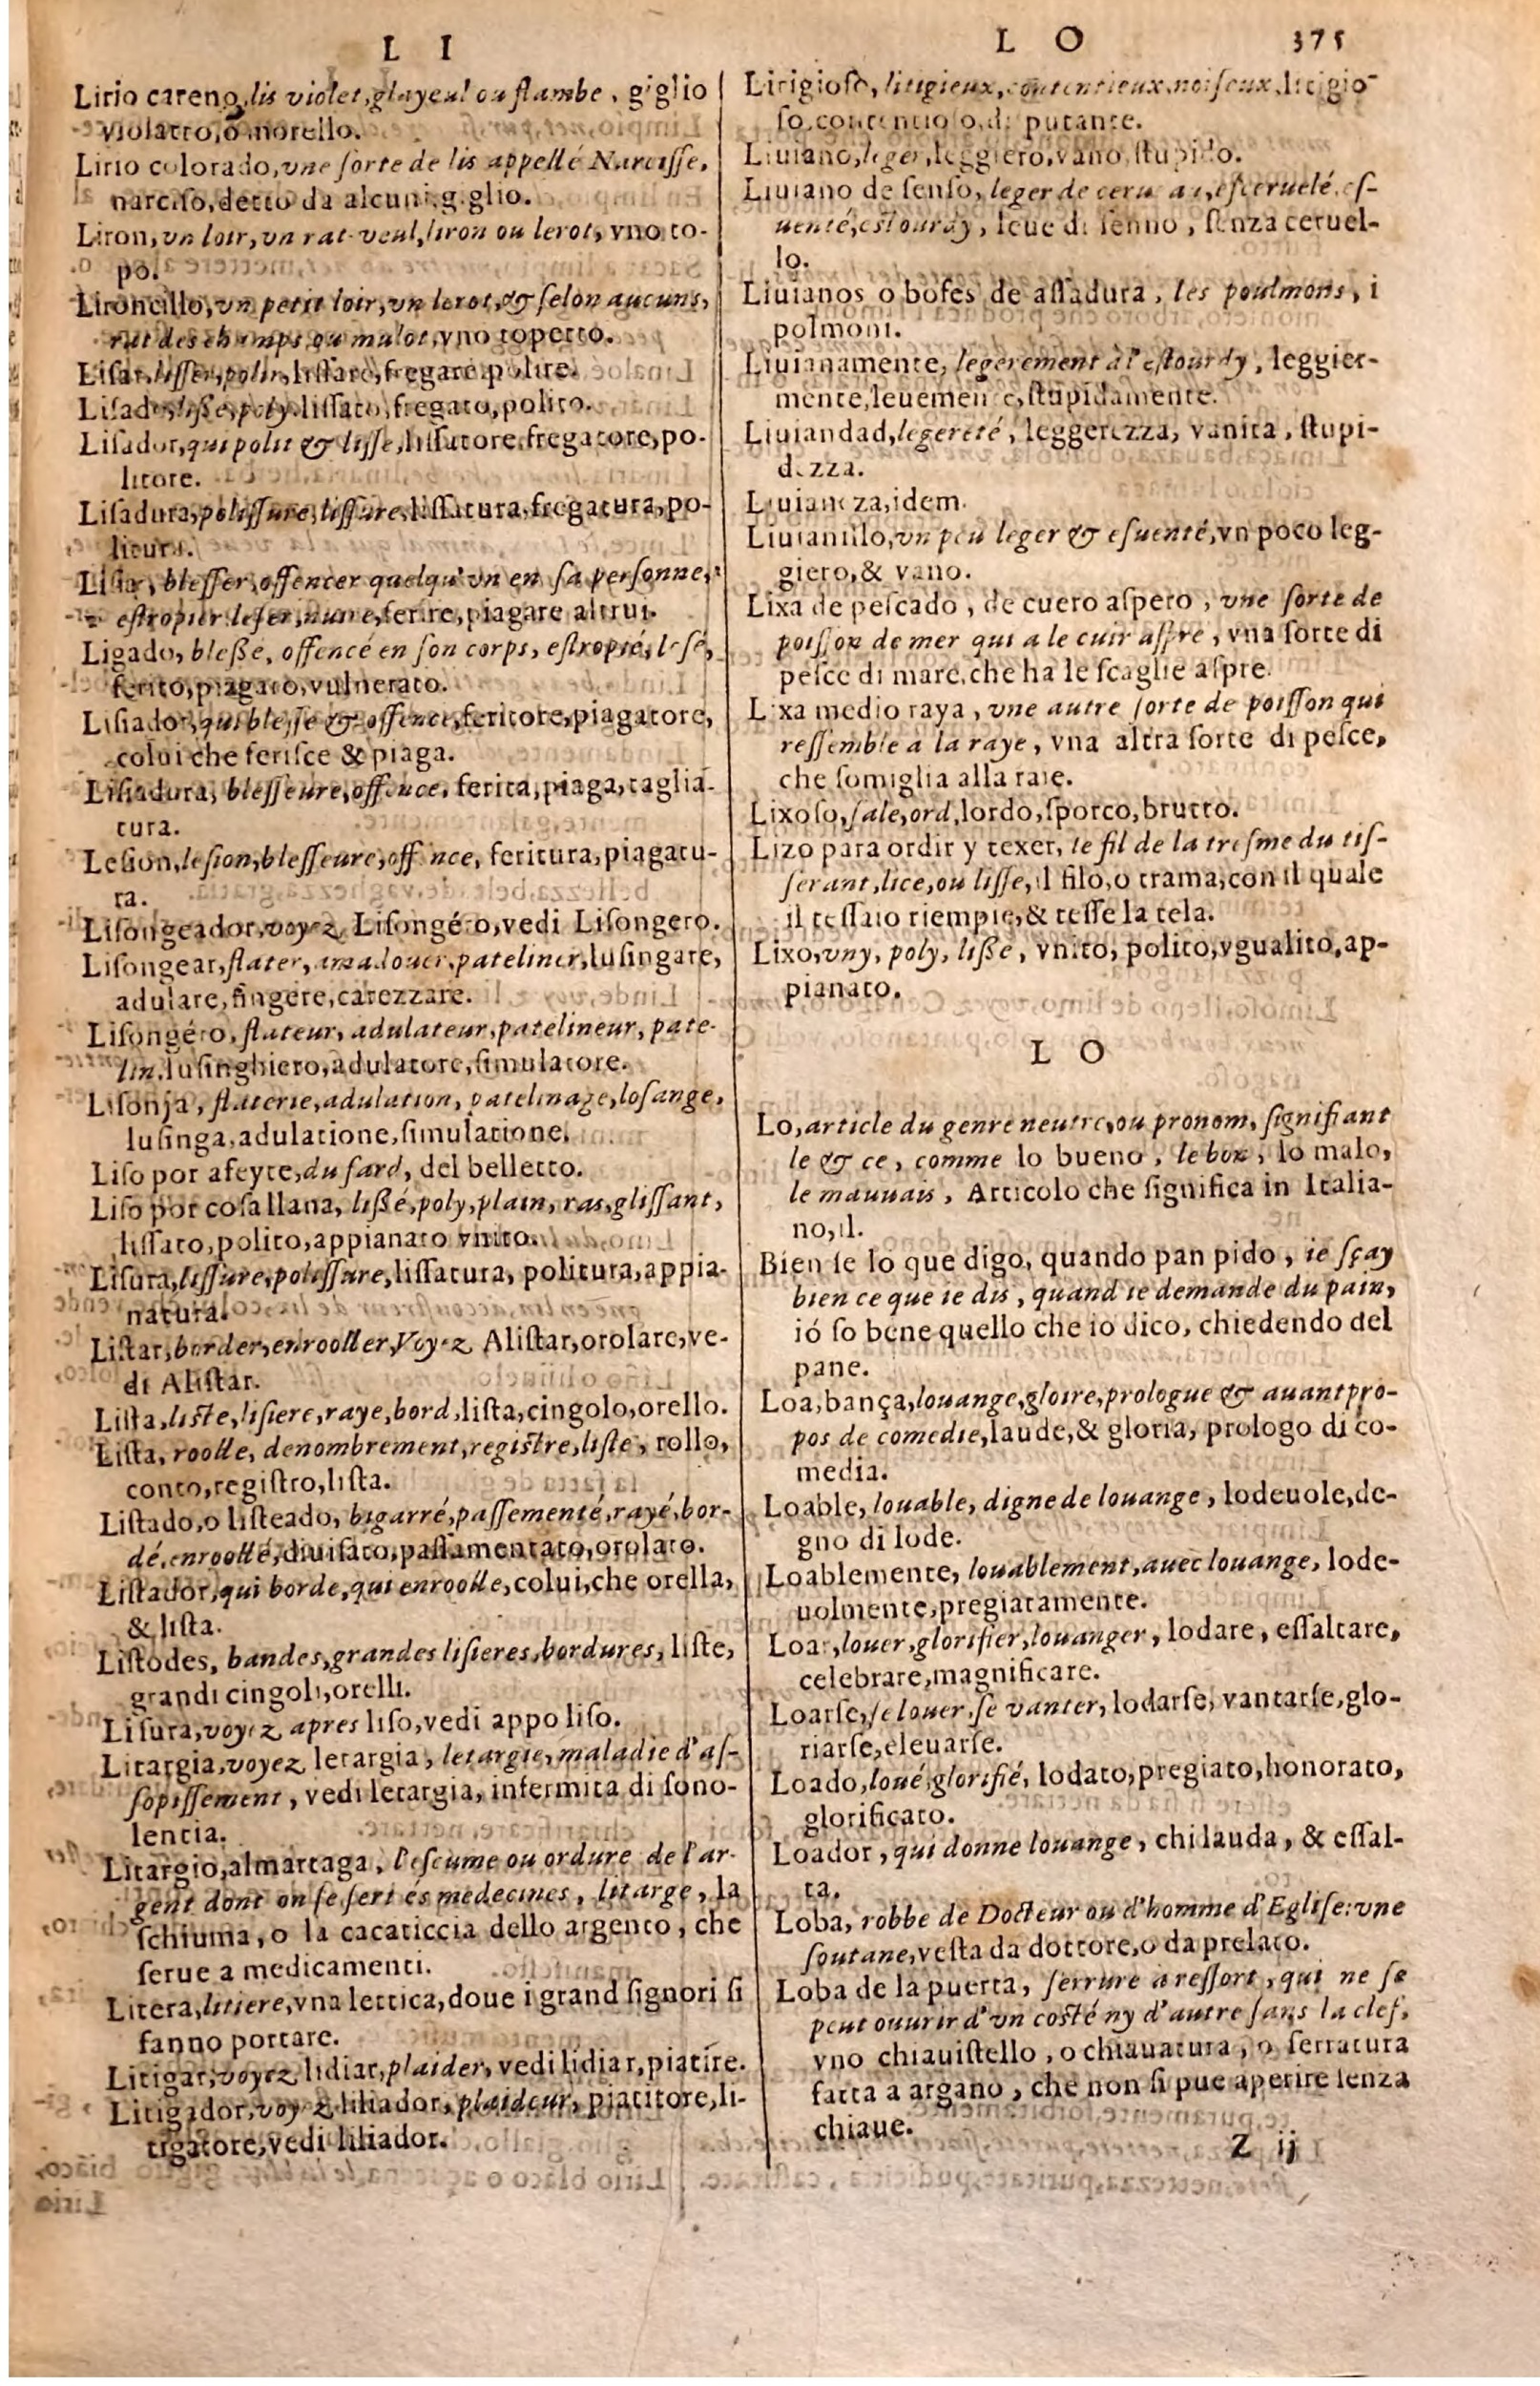 L I
Lirio careno, lis violet, glayeul ou flambe, giglio
violatto, o morello.
Lirio colorado, vne ſorte de lis appellé Narciſſe,
narciſo, detto da alcuni, giglio.
Liron, vn loir, vn rat-veul, liron ou lerot, vno to-
po.
Lironcillo, vn petit loir, vn lerot, & ſelon aucuns,
rat des champs, ou mulot, vno topetto.
Liſar, liſſer, polir, liſſare, fregare, polire.
Liſado, liße, poly, liſſato, fregato, polito.
Liſador, qui polit & liſſe, liſſatore, fregatore, po-
litore.
Liſadura, poliſſure, liſſure, liſſatura, fregatura, po-
litura.
Liſiar, bleſſer, offencer quelqu'vn en ſa perſonne,
eſtropier leſer, nuire, ferire, piagare altrui.
Ligado, bleße, offencé en ſon corps, eſtropié, leſé,
ferito, piagato, vulnerato.
Liſiador, qui bleſſe & offence, feritore, piagatore,
colui che feriſce & piaga.
Liſiadura, bleſſeure, offence, ferita, piaga, taglia-
tura.
Leſion, leſion, bleſſeure, offence, feritura, piagatu-
ra.
Liſongeador, voyez Liſongéro, vedi Liſongero.
Liſongear, flater, amadouer, pateliner, luſingare,
adulare, fingere, carezzare.
Liſongéro, flateur, adulateur, patelineur, pate-
lin, luſinghiero, adulatore, ſimulatore.
Liſonja, flaterie, adulation, patelinage, loſange,
luſinga, adulatione, ſimulatione.
Liſo por afeyte, du fard, del belletto.
Liſo por coſa llana, lißé, poly, plain, ras, gliſſant,
liſſato, polito, appianato vnito.
Liſura, liſſure, poliſſure, liſſatura, politura, appia-
natura.
Liſtar, border, enrooller, Voyez Aliſtar, orolare, ve-
di Aliſtar.
Liſta, liſte, liſiere, raye, bord, liſta, cingolo, orello.
Liſta, roolle, denombrement, regiſtre, liſte, rollo,
conto, regiſtro, liſta.
Liſtado, o liſteado, bigarré, paſſementé, rayé, bor-
dé, enroollé, diuiſato, paſſamentato, orolato.
Liſtador, qui borde, qui enroolle, colui, che orella,
& liſta.
Liſtodes, bandes, grandes liſieres, bordures, liſte,
grandi cingoli, orelli.
Liſura, voyez apres liſo, vedi appo liſo.
Litargia, voyez letargia, letargie, maladie d'aſ-
ſopiſſement, vedi letargia, infermita di ſono-
lentia.
Litargio, almartaga, l'eſcume ou ordure de l'ar-
gent dont on ſe ſert és medecines, litarge, la
ſchiuma, o la cacaticcia dello argento, che
ſerue a medicamenti.
Litera, litiere, vna lettica, doue i grand ſignori ſi
fanno portare.
Litigar, voyez lidiar, plaider, vedi lidiar, piatire.
Litigador, voyez liliador, plaideur, piatitore, li-
tigatore, vedi liliador.
L O 375
Litigioſo, litigieux, contentieux, noiſeux, litigio-
ſo, contentioſo, diſputante.
Liuiano, leger, leggiero, vano, ſtupido.
Liuiano de ſenſo, leger de cerueau, eſceruelé, eſ-
uenté, eſtourdy, leue di ſenno, ſenza ceruel-
lo.
Liuianos o bofes de aſſadura, les poulmons, i
polmoni.
Liuianamente, legerement à l'eſtourdy, leggier-
mente, leuemente, ſtupidamente.
Liuiandad, legereté, leggerezza, vanita, ſtupi-
dezza.
Liuianeza, idem.
Liuianillo, vn peu leger & eſuenté, vn poco leg-
giero, & vano.
Lixa de peſcado, de cuero aſpero, vne ſorte de
poiſſon de mer qui a le cuir aſpre, vna ſorte di
peſce di mare, che ha le ſcaglie aſpre.
Lixa medio raya, vne autre ſorte de poiſſon qui
reſſemble a la raye, vna altra ſorte di peſce,
che ſomiglia alla raie.
Lixoſo, ſale, ord, lordo, ſporco, brutto.
Lizo para ordir y texer, le fil de la treſme du tiſ-
ſerant, lice, ou liſſe, il filo, o trama, con il quale
il teſſaio riempie, & teſſe la tela.
Lixo, vny, poly, liße, vnito, polito, vgualito, ap-
pianato.
L O
Lo, article du genre neutre, ou pronom, ſignifiant
le & ce, comme lo bueno, le bon, lo malo,
le mauuais, Articolo che ſignifica in Italia-
no, il.
Bien ſe lo que digo, quando pan pido, ie ſçay
bien ce que ie dis, quand ie demande du pain,
ió ſo bene quello che io dico, chiedendo del
pane.
Loa, bança, louange, gloire, prologue & auantpro-
pos de comedie, laude, & gloria, prologo di co-
media.
Loable, louable, digne de louange, lodeuole, de-
gno di lode.
Loablemente, louablement, auec louange, lode-
uolmente, pregiatamente.
Loar, louer, glorifier, louanger, lodare, eſſaltare,
celebrare, magnificare.
Loarſe, ſe louer, ſe vanter, lodarſe, vantarſe, glo-
riarſe, eleuarſe.
Loado, loué, glorifié, lodato, pregiato, honorato,
glorificato.
Loador, qui donne louange, chi lauda, & eſſal-
ta.
Loba, robbe de Docteur ou d'homme d'Egliſe: vne
ſoutane, veſta da dottore, o da prelato.
Loba de la puerta, ſerrure a reſſort, qui ne ſe
peut ouurir d'vn coſté ny d'autre ſans la clef,
vno chiauiſtello, o chiauatura, o ſerratura
fatta a argano, che non ſi pue aperire ſenza
chiaue.
Z ij